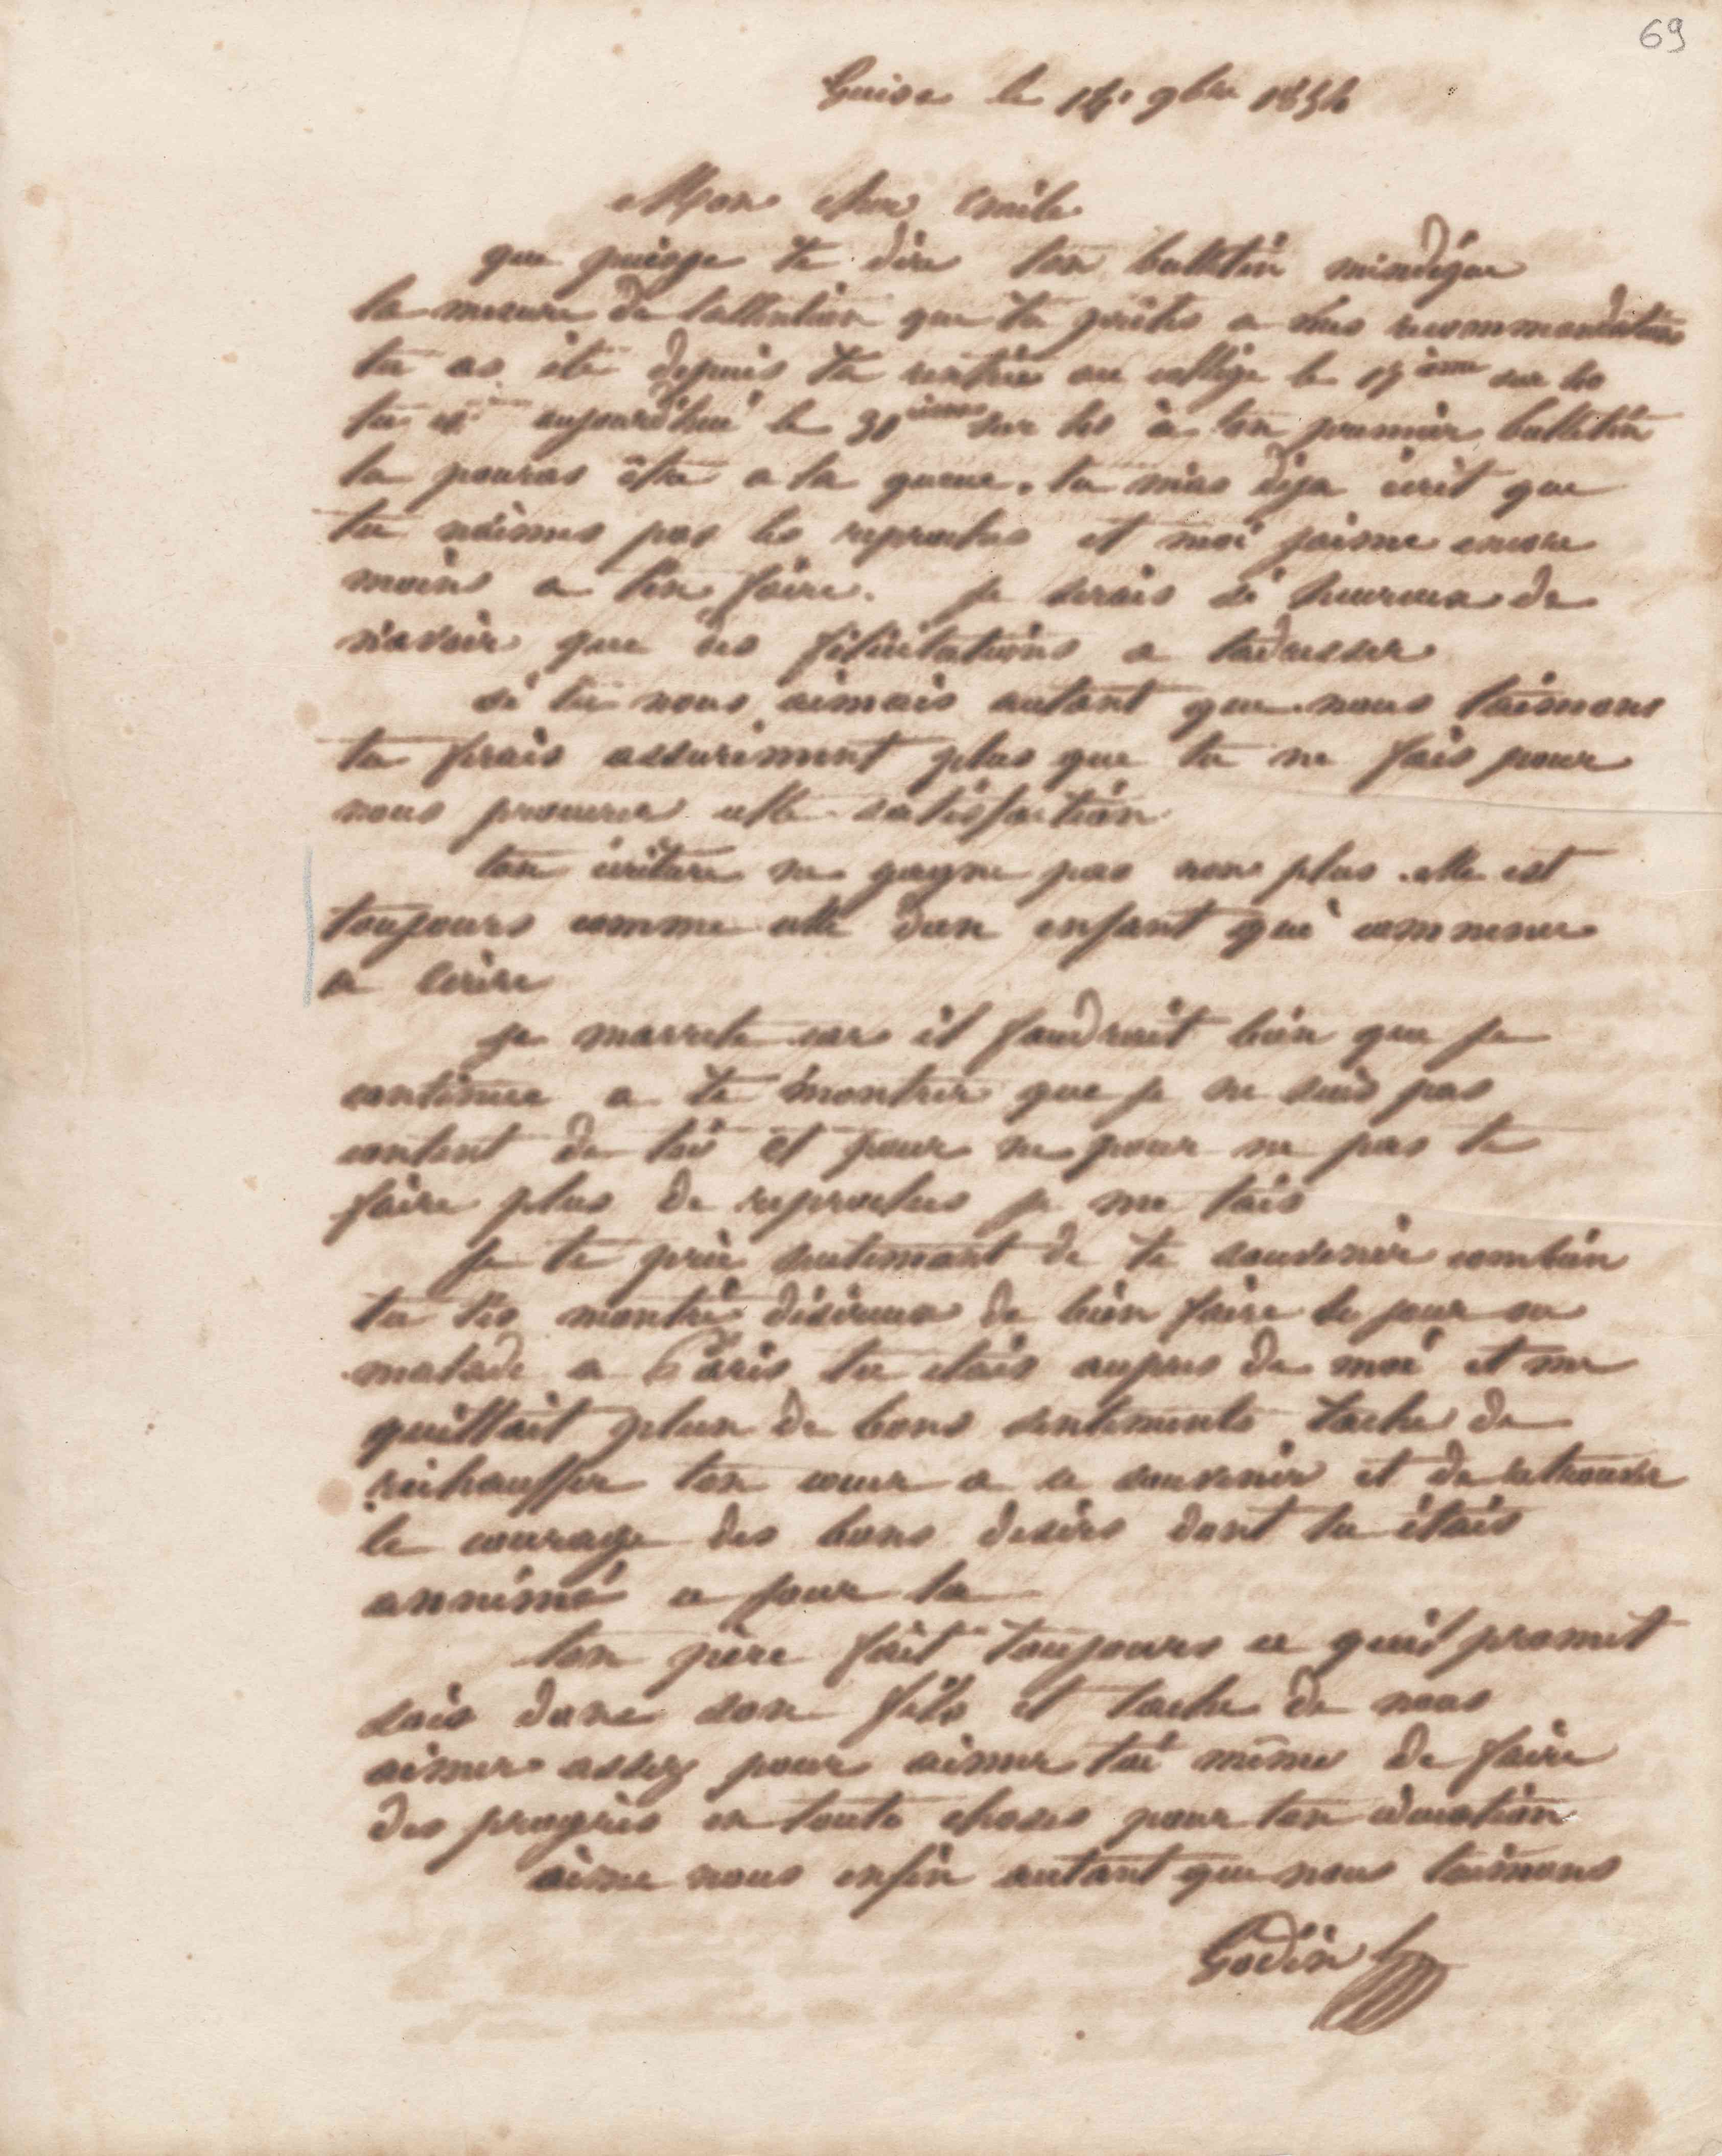 69
Guise le 14 9bre 1854
Mon cher Emile
que puisje te dire ton bulletin mindique
la mesure de lattention que tu prêtes a mes recommandations
tu as été depuis ta rentrée au collège le 15ème sur 60
tu es aujourdhui le 30ième sur 60 à ton premier bulletin
tu pouras être a la queue. tu mas déja écrit que
tu naimes pas les reproches et moi jaime encore
moins a ten faire. je serais si heureux de
navoir que des félicitations a tadresser
si tu nous aimais autant que nous taimons
tu ferais assurément plus que tu ne fais pour
nous procurer cette satisfaction
ton écriture ne gagne pas non plus. elle est
toujours comme celle dun enfant qui commence
a écrire
je marrete car il faudrait bien que je
continue a te montrer que je ne suis pas
content de toi et pour ne pour ne pas te
faire plus de reproches je me tais
je te prie seulement de te souvenir combien
tu tes montré désireux de bien faire le jour ou
malade a Paris tu étais aupres de moi et me
quittait plein de bons sentiments tache de
réchauffer ton coeur a ce souvenir et de retrouver
le courage des bons desirs dont tu étais
annimé ce jour la
ton père fait toujours ce quil promet
sois donc son fils et tache de nous
aimer assez pour aimer toi même de faire
des progrès en toute choses pour ton éducation
aime nous enfin autant que nous taimons
Godin